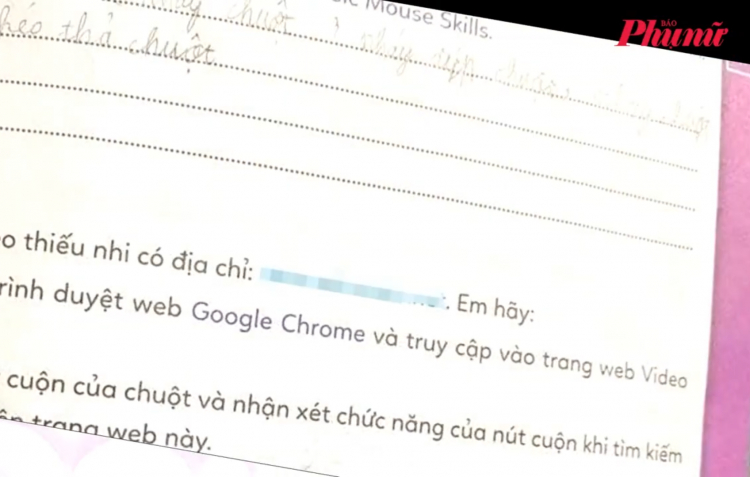 Mouse Skills.
BÁO
Phụ nữ
kéo thả chuột
o thiếu nhi có địa chỉ: . Em hãy:
rình duyệt web Google Chrome và truy cập vào trang web Video
cuộn của chuột và nhận xét chức năng của nút cuộn khi tìm kiếm
ên trang web này.